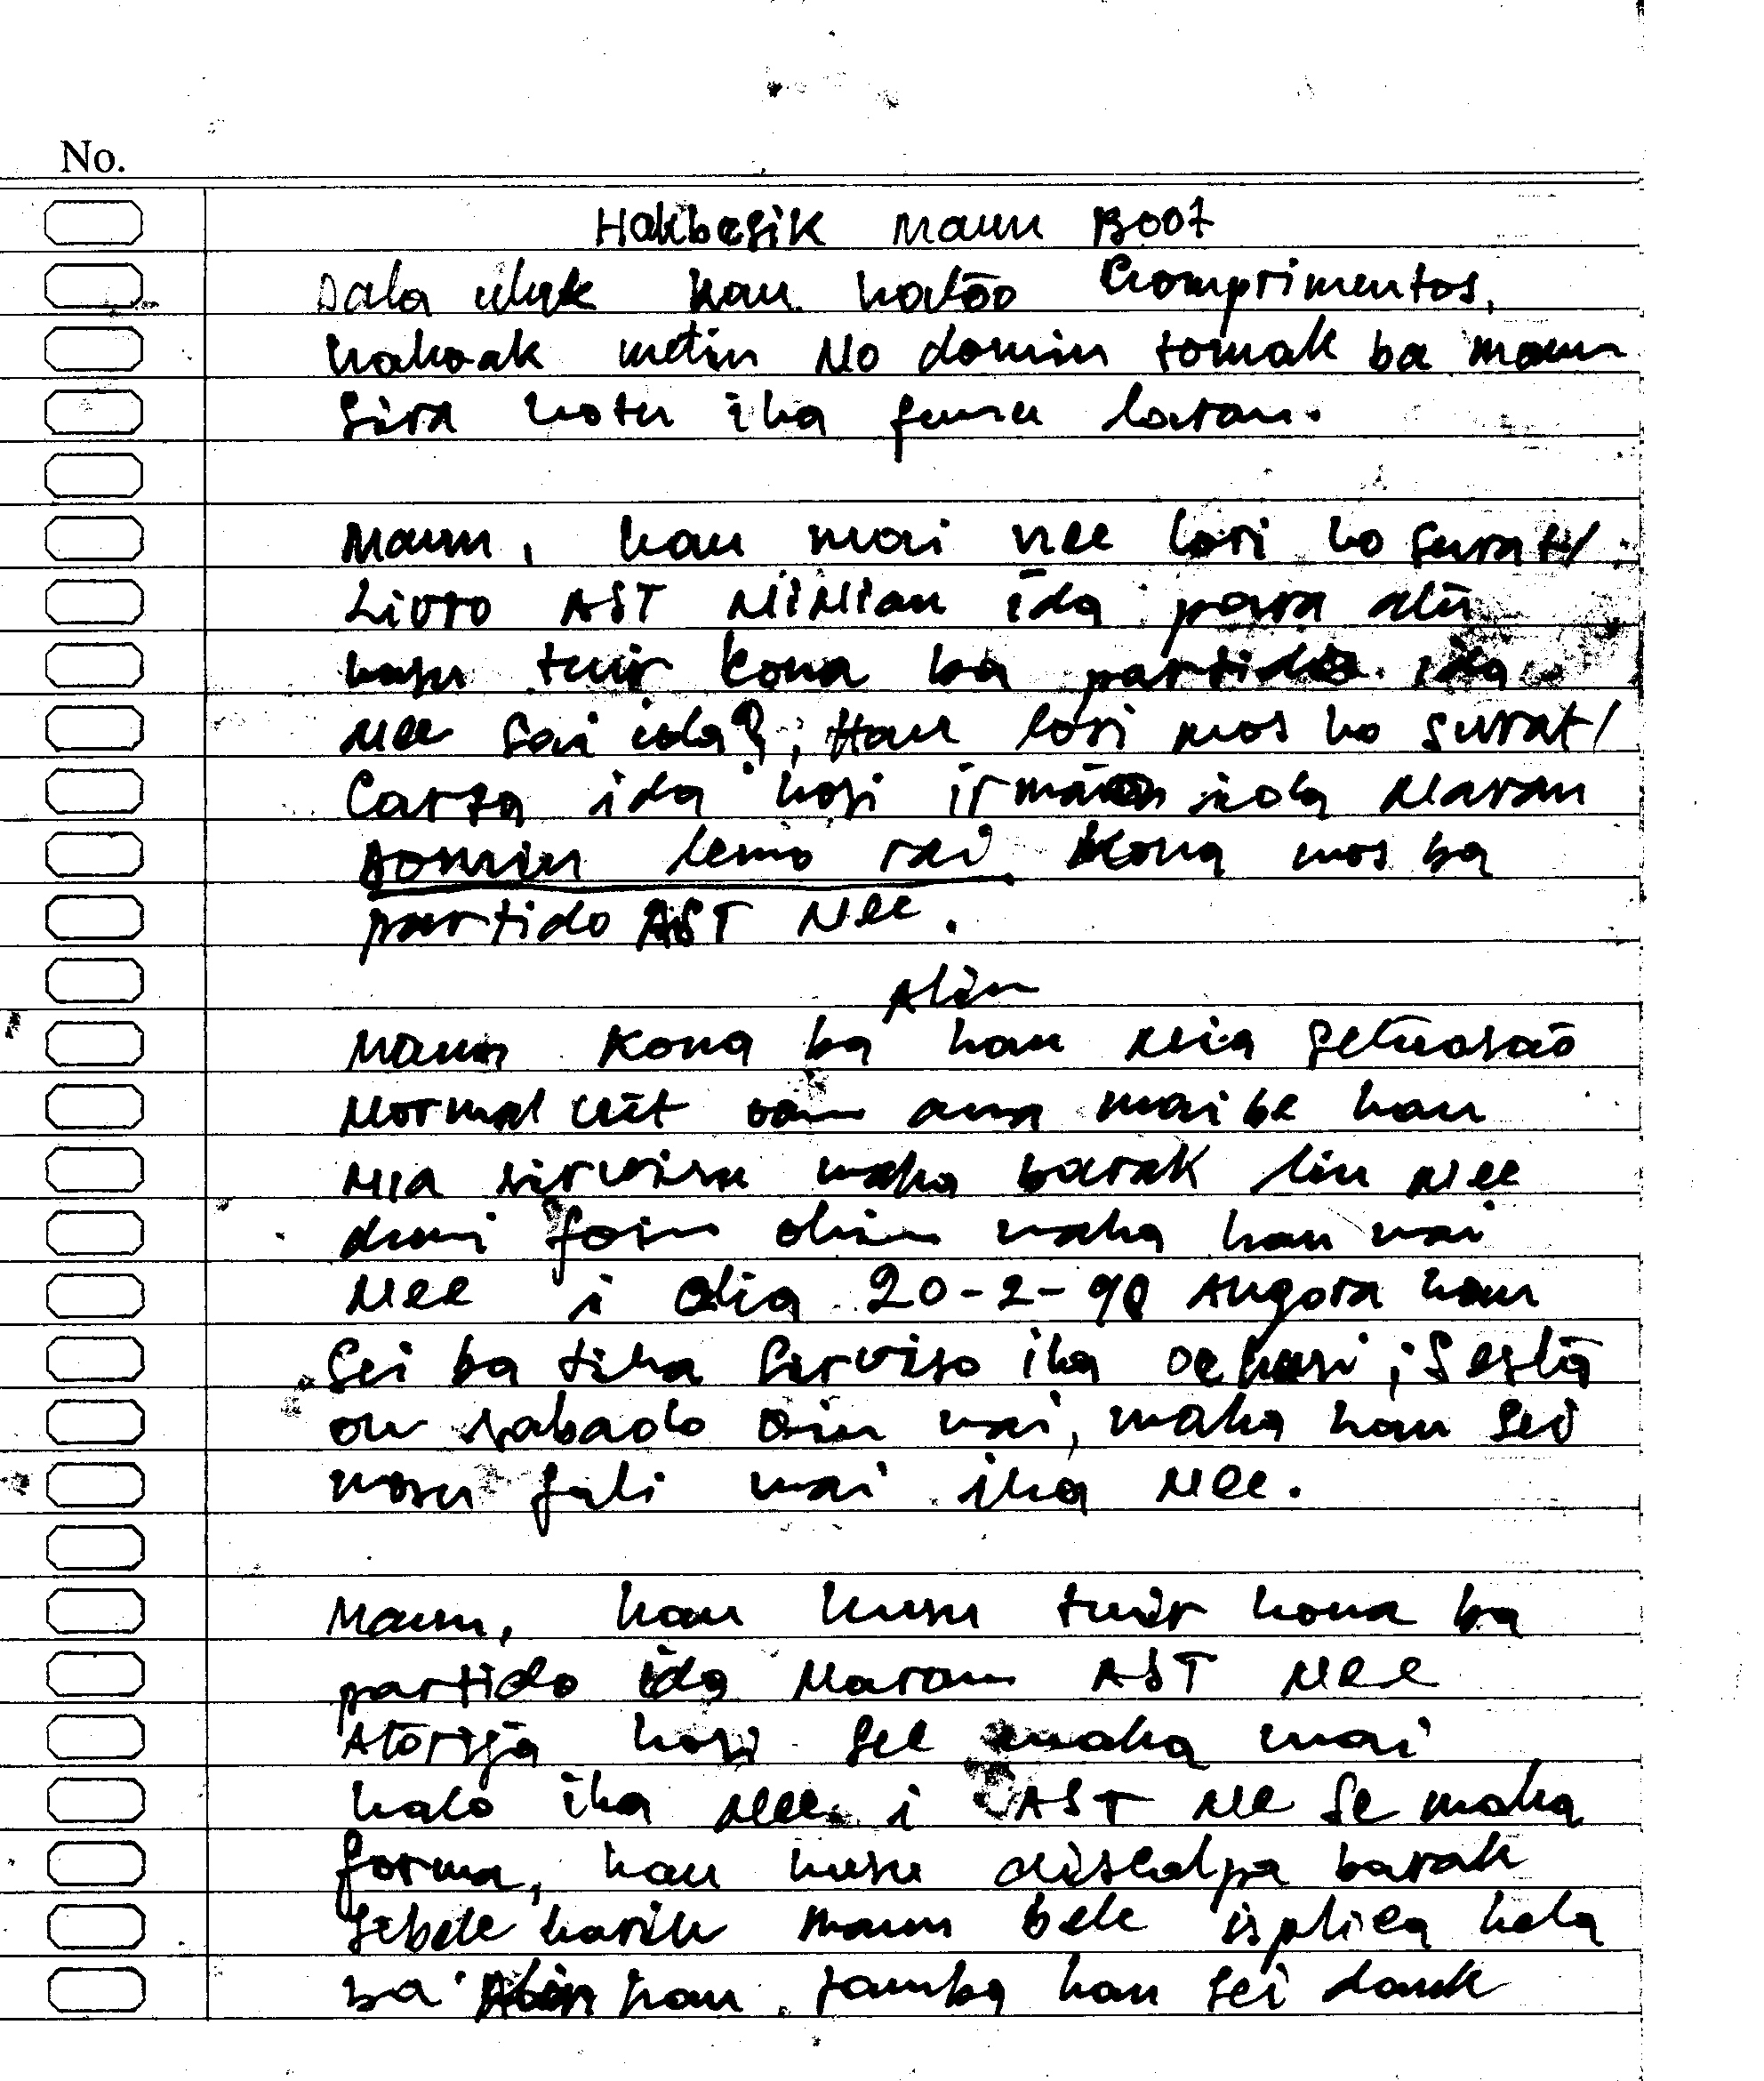 No.
Hakbesik Maun Boot
Dala uluk hau hatóo Comprimentos,
hakoak metin No domin tomak ba maun
Sira hotu iha funu laran.
Maun, hau mai nee lori ho surat/
Livro AST NiNian ida para atu
husu tuir kona ba partido ida
Nee sai ida?, Hau lori mos ho surat/
Carta ida hosi irmão ida Naran
Domin lemo rai kona mos ba
partido AST Nee.
Alin
Maun kona ba hau Nia setuasaõ
Normal uit oan ana maibe hau
Nia sirvisu maka barak liu Nee
duni foin ohin maka hau mai
Nee i dia 20-2-98 Angora hau
Sei ba tiha Serviso iha oekusi, Sestá
ou sabado oin mai, maka hau sei
mosu fali mai iha Nee.
Maun, hau husu tuir kona ba
partido ida Naran AST Nee
Atorija hosi see maka mai
halo iha Nee i AST Ne Se maka
forma, hau husu diskolpa barak
Sebele karik maun bele isplica hela
ba Alin hau, tamba hau sei dauk